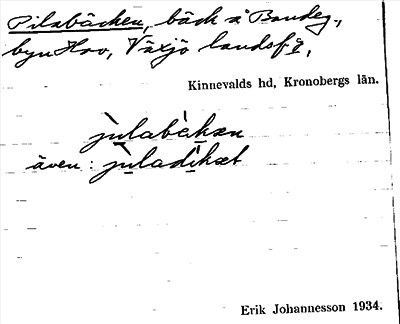 Pilabäcken, bäck å Bondeg.,
byn Hov, Växjö landsf̊g,
Kinnevalds hd, Kronobergs län.
pìlabèkæn
även: pìladikæt
Erik Johannesson 1934.